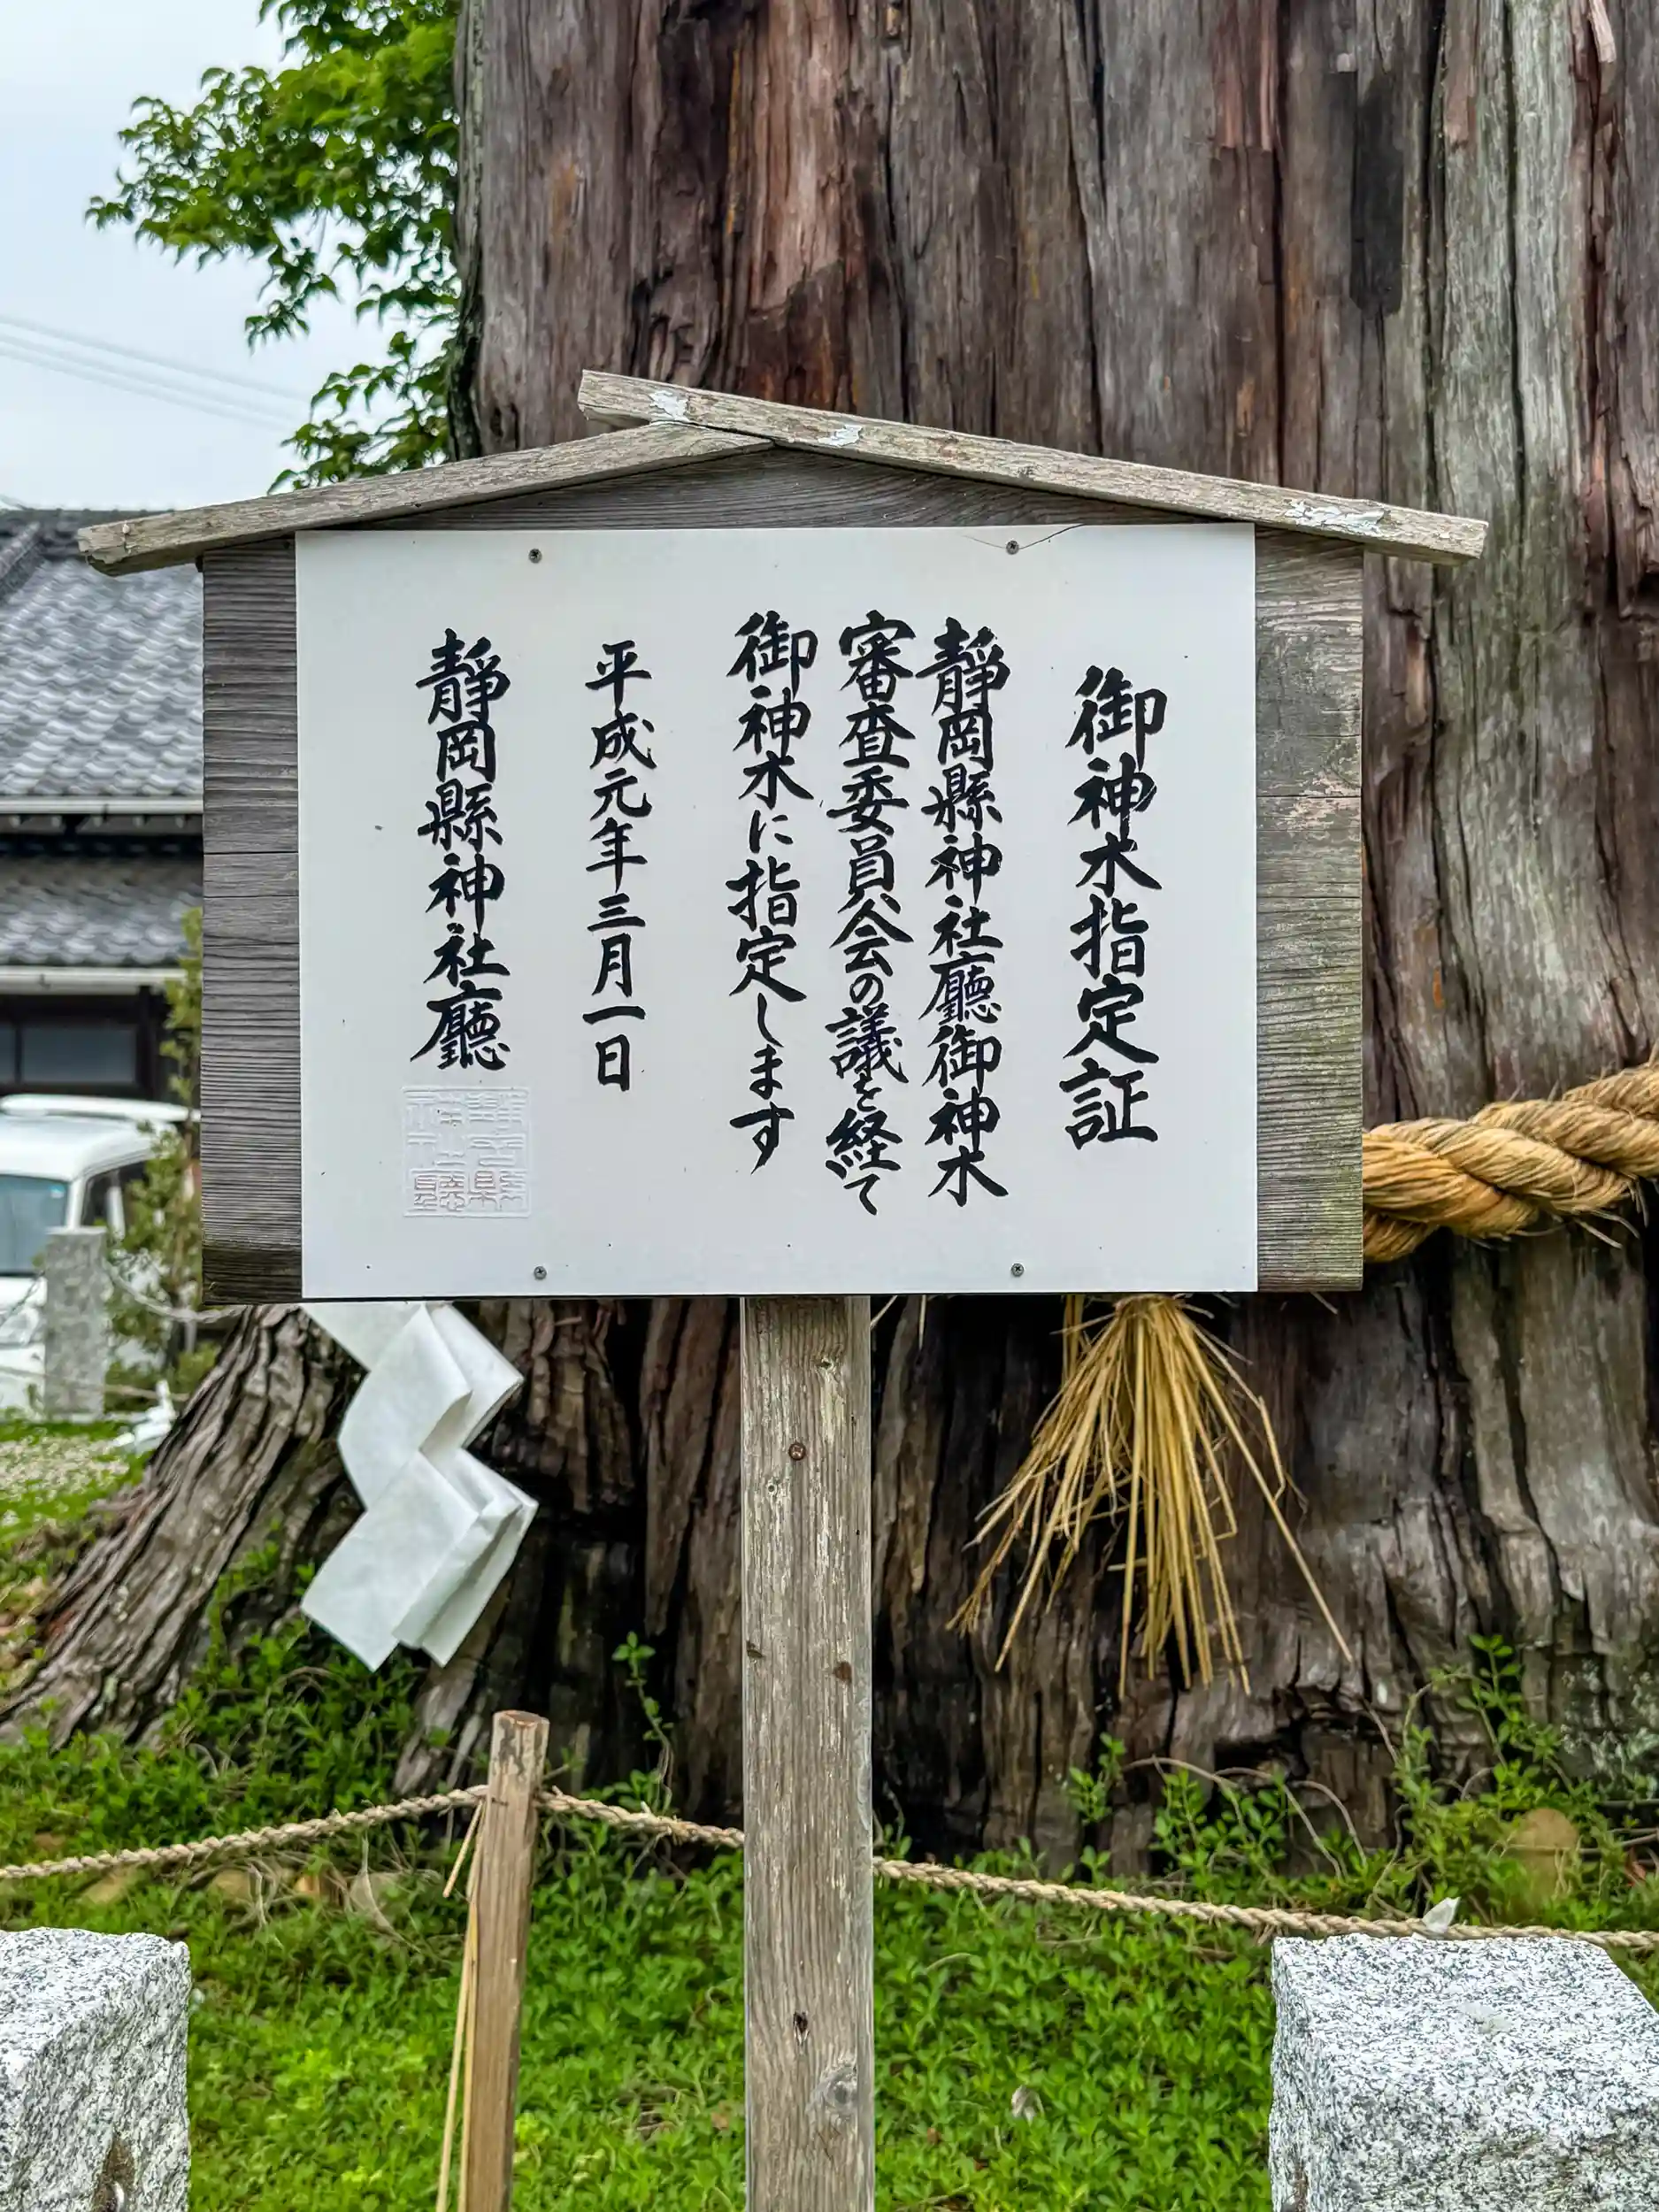 御神木指定証
靜岡縣神社廳御神木
審査委員会の議を経て
御神木に指定します
平成元年三月一日
靜岡縣神社廳